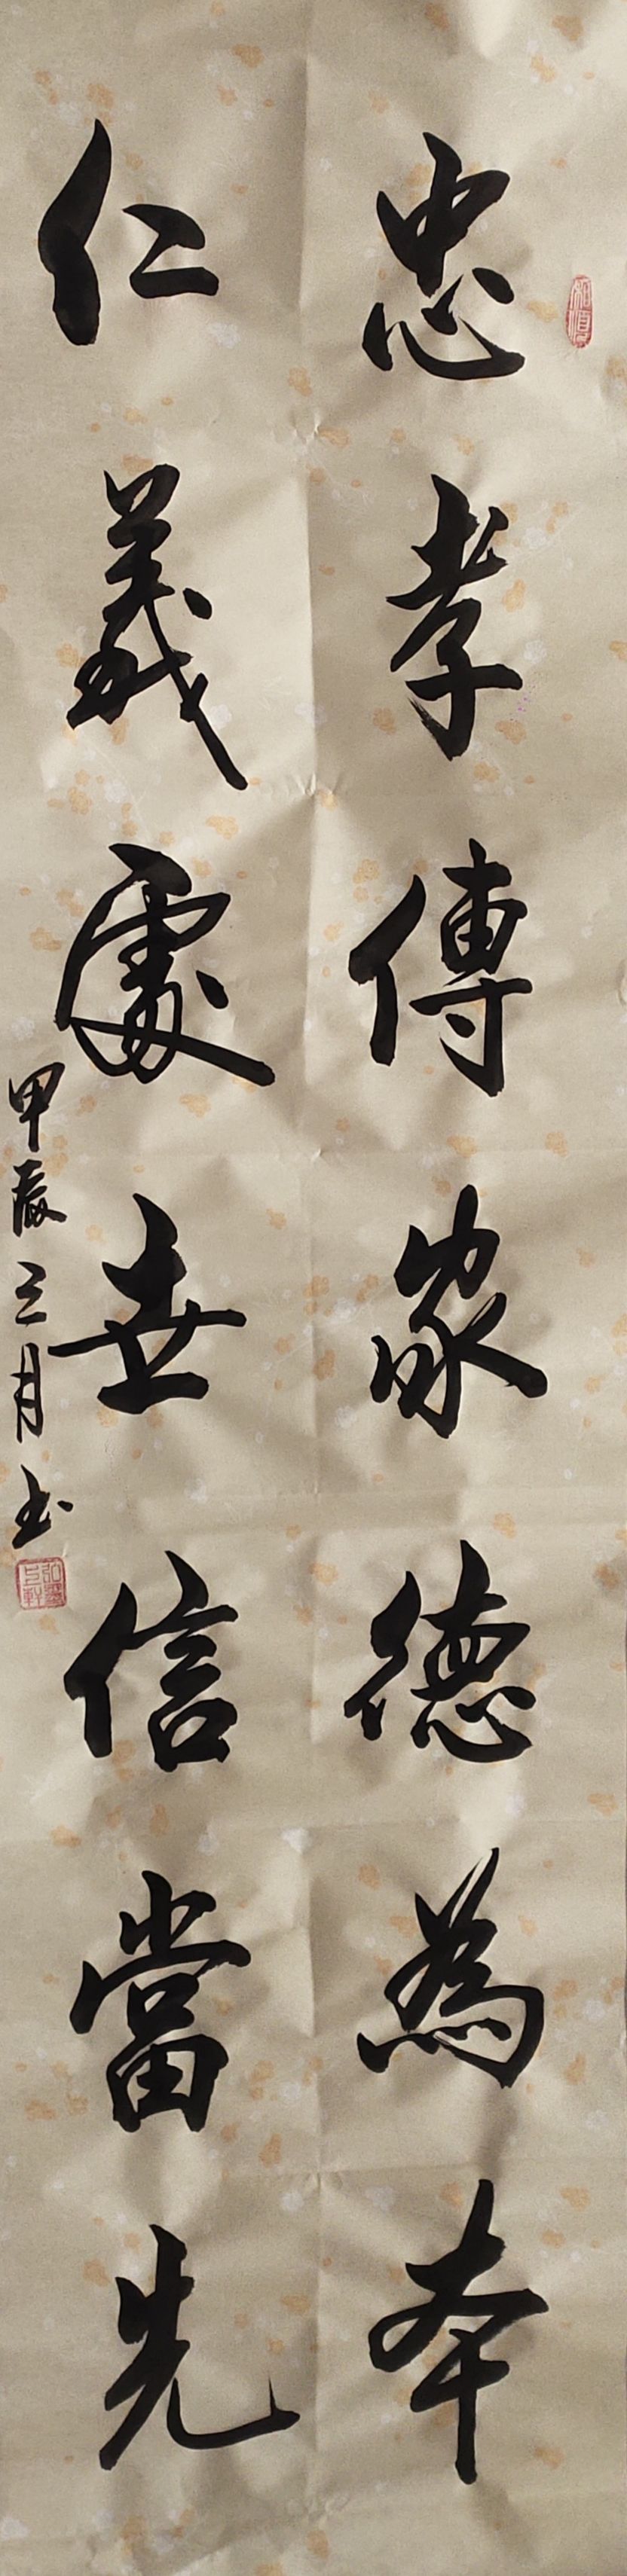 忠孝傳家德為本
仁義處世信當先
甲辰三月書